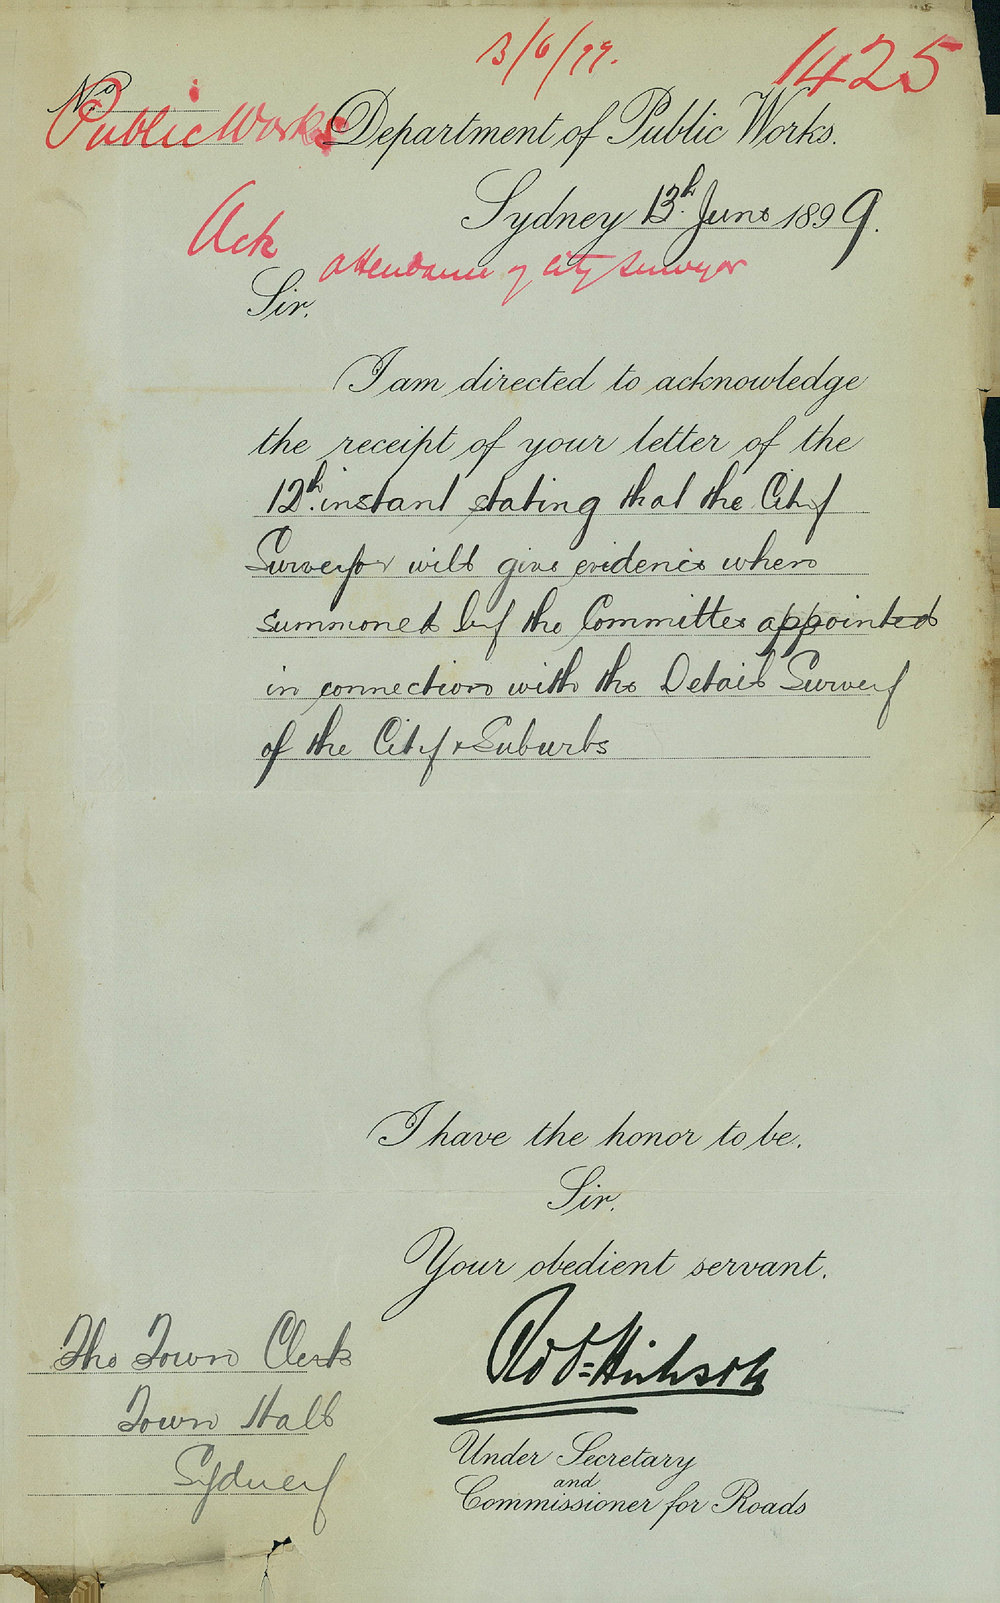 13/6/99.
1425
No
Public Works
Department of Public Works.
Sydney 13th. June 1899.
Ack
attendance of City Surveyor
Sir.
I am directed to acknowledge
the receipt of your letter of the
12th. instant stating that the City
Surveyor will give evidence when
summoned by the Committee appointed
in connection with the Detail Survey
of the City & Suburbs
I have the honor to be,
Sir,
Your obedient servant.
Robt. Hickson
Under Secretary
and
Commissioner for Roads
The Town Clerk
Town Hall
Sydney